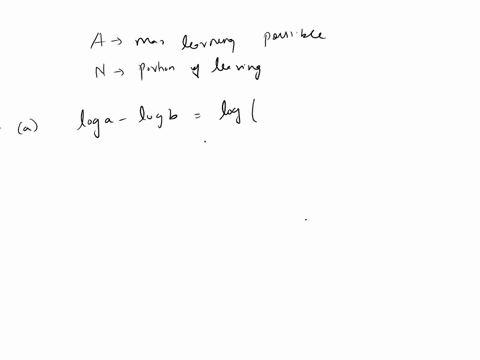 A → max learning possible
N → portion of learning
(a) log a - log b = log (